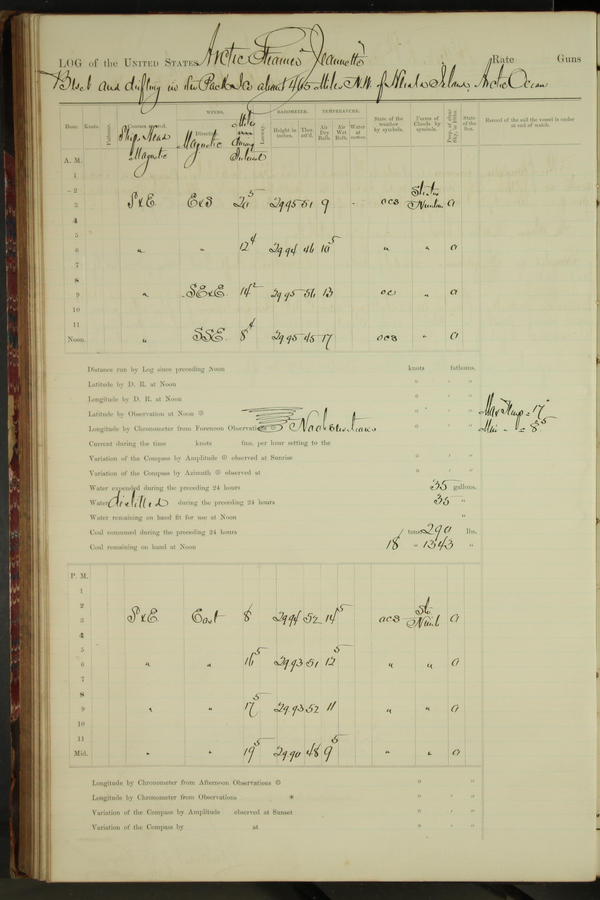 LOG of the UNITED STATES Arctic Steamer Jeannette Rate Guns
Beset and drifting in the Pack Ice about 465 Miles N.W. of Island, Arctic Ocean
WINDS. BAROMETER. TEMPERATURE.
Hour. Knots. Fathoms. Courses Ship's Head Magnetic Direction Magnetic Miles per during Interval Leeway. Height in inches. Ther. att'd. Air Dry Bulb. Air Wet Bulb. Water at surface. State of the weather by symbols. Forms of Clouds by symbols. Prop. of clear Sky, in 10ths. State of the Sea. Record of the sail the vessel is under at end of watch.
A. M.
1
2
3 S&E E&S 20 5 29 95 51 9 ocs Stratus Nimbus 0
4
5
6 " " 12 4 29 94 46 10 5 " " 0
7
8
9 " SE&E 14 2 29 95 56 13 oc " 0
10
11
Noon. " SSE 8 4 29 95 45 17 ocs " 0
Distance run by Log since preceding Noon knots fathoms.
Latitude by D. R. at Noon ° ' "
Longitude by D. R. at Noon ° ' "
Latitude by Observation at Noon ° ' " Max Temp = 17°
Longitude by Chronometer from Forenoon Observations No observations ° ' " Min " = 8 5
Current during the time knots fms. per hour setting to the
Variation of the Compass by Amplitude observed at Sunrise ° ' "
Variation of the Compass by Azimuth observed at ° ' "
Water expended during the preceding 24 hours 35 gallons.
Water distilled during the preceding 24 hours 35 "
Water remaining on hand fit for use at Noon "
Coal consumed during the preceding 24 hours tons 290 lbs.
Coal remaining on hand at Noon 18 " 1343 "
P. M.
1
2
3 S&E East 8 29 94 52 14 5 ocs Str Nimb 0
4
5
6 " " 16 5 29 93 51 12 5 " " 0
7
8
9 " " 17 5 29 93 52 11 " " 0
10
11
Mid. " " 19 5 29 90 48 9 5 " " 0
Longitude by Chronometer from Afternoon Observations ° ' "
Longitude by Chronometer from Observations * ° ' "
Variation of the Compass by Amplitude observed at Sunset ° ' "
Variation of the Compass by at ° ' "